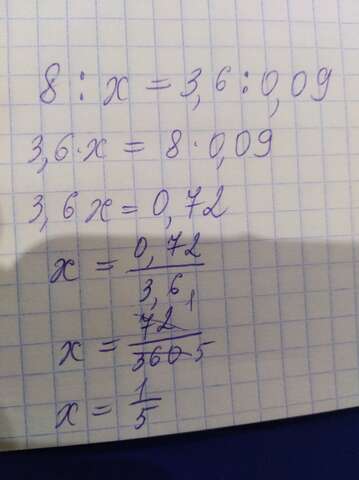 8 : x = 3,6 : 0,09
3,6 · x = 8 · 0,09
3,6 x = 0,72
x = 0,72 / 3,6
x = 72 1 / 360 5
x = 1 / 5